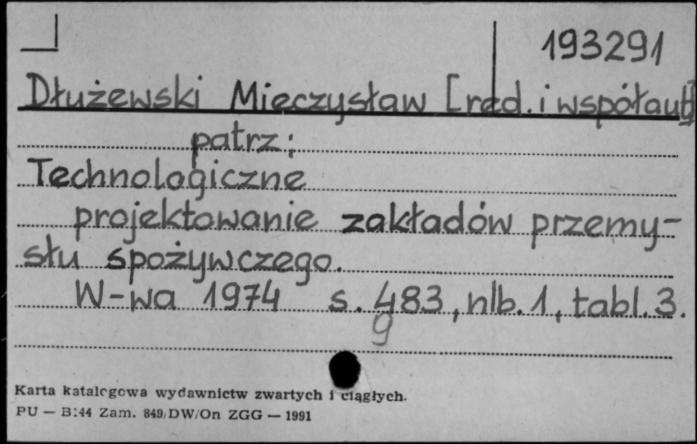 193291
Dłużewski Mieczysław [red. i współaut]
patrz:
Technologiczne
projektowanie zakładów przemy-
słu spożywczego.
W-wa 1974 s. 483, nlb. 1, tabl. 3.
9
Karta katalogowa wydawnictw zwartych i ciągłych.
PU — B:44 Zam. 849/DW/On ZGG — 1991